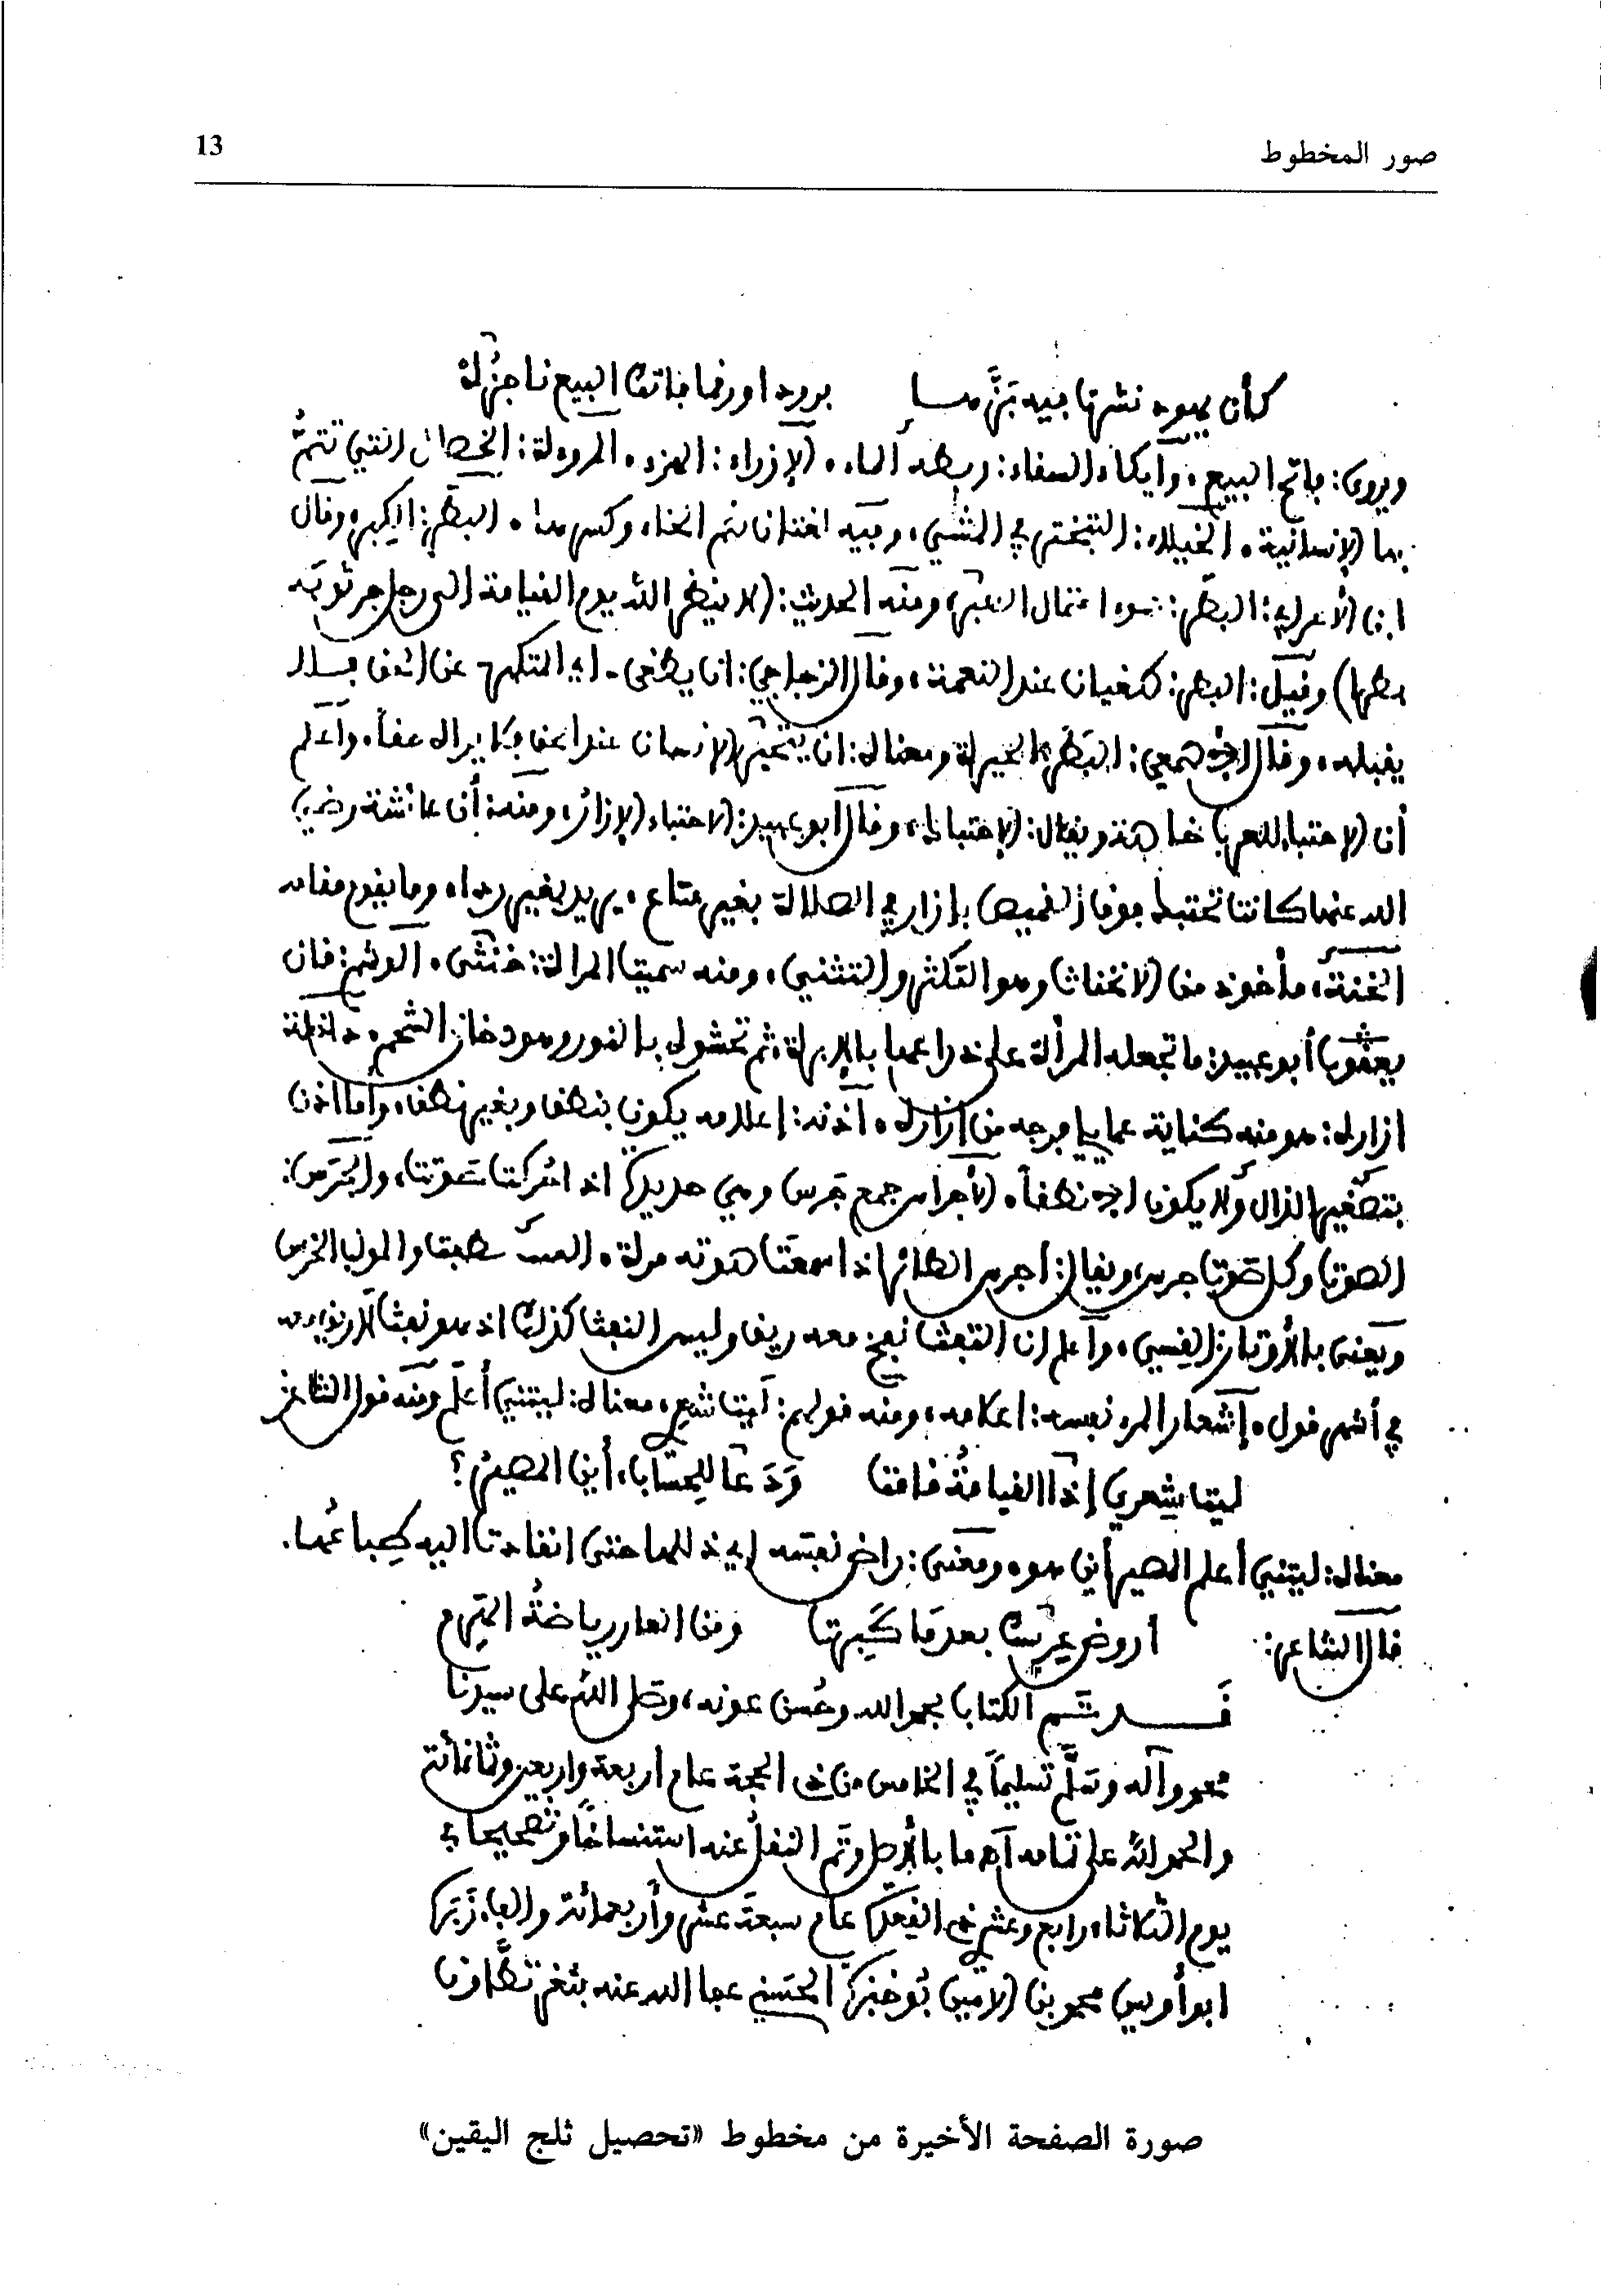 صور المخطوط
13
كأن يهود نشرتها فيه بَزَّها برود ورقما فاتك البيع ناجزُله
ويروى: فاتح البيع، وإيكاء السقاء: ربطه الماء، الإزراء: الهزء، المروءة: الخصال التي تتم
بها الإنسانية، الخيلاء: التبختر في المشي، وفيه لغتان ضم الخاء وكسرها، البطر: الكبر، وقال
ابن الأعرابي: البطر: سوء احتمال، ومنه الحديث: (لا ينظر الله يوم القيامة إلى رجل جر ثوبه
بطرا) وقيل: البطر: طغيان عند النعمة، وقال الزجاجي: ان يطغى، اي التكبر عن الحق فلا
يقبله، وقال الأصمعي: البَطَر: الحيرة ومعناه: ان يتحير الإنسان عند الحق فلا يراه حقاً، واعلم
أن الاحتباء للعرب خاصة ويقال: الاحتباك، وقال أبو عبيد: الاحتباء الإزار، ومنه: أن عائشة رضي
الله عنها كانت تحتبك فوق القميص بإزار في الصلاة بغير قناع، يريد بغير رداء وما يقوم مقامه
الخنثى، مأخوذ من الانخناث وهو التكسر والتثني، ومنه سميت المرأة: خنثى، الوشم: قال
يعقوب أبو عبيد: ما تجعله المرأة على ذراعها بالإبرة، ثم تحشوه بالنور وهو دخان الشحم، داخلة
ازاره: هو منه كناية عما يلي فرجه من إزاره، آذنه: إعلامه يكون بنطق وبغير نطق، وأما أذن
بتضغير الذال ولا يكون إلا نطقاً، الأجراس جمع جرس وهي حديدة اذا حُركت صوتت، والجرس:
الصوت وكل صوت جرس، ويقال: أجرس الطائر اذا سمعت صوته مرة،
ويعني بالأوتار القسي، واعلم ان النفث نفخ معه ريق وليس النفث كذلك
في أشهر قول، إشعار المرء نفسه: اعلامه، ومنه قولهم: ليت شعري معناه: ليتني أعلم ومنه قول الشاعر
ليت شعري إذا القيامةُ قامت وَدَعَا للحِسَاب، أين المصيرُ؟
معناه: ليتني أعلم المصير أين هو، ومعنى: راض نفسه اي ذللها حتى انقادت اليه طباعُها.
قال الشاعر: أروض عرسك بعدما كَبِرت ومن العار رياضةُ الهَرِم
قـد تَـم الكتاب بحمد الله وحُسن عونه، وصلى اللهُ على سيدنا
محمد وآله وسَلَّم تسليماً في الخامس من ذي الحجة عام أربعة وأربعين وثمانمائة
والحمد لله على تمامه آه ما بالأصل وتم النقلُ عنه استنساخًا وتصحيحا في
يوم الثلاثاء رابع وعشري ذي القعدة عام سبعة عشر وأربعمائة وألف، زبره
ابو أويس محمد بن الأمين بُوخبزة الحَسني عفا الله عنه بثغر تطاون
صورة الصفحة الأخيرة من مخطوط «تحصيل ثلج اليقين»